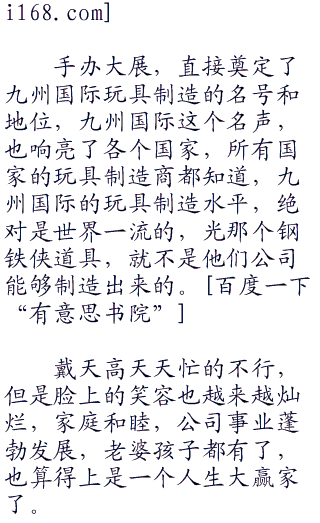 i168.com]
手办大展，直接奠定了
九州国际玩具制造的名号和
地位，九州国际这个名声，
也响亮了各个国家，所有国
家的玩具制造商都知道，九
州国际的玩具制造水平，绝
对是世界一流的，光那个钢
铁侠道具，就不是他们公司
能够制造出来的。[百度一下
“有意思书院”]
戴天高天天忙的不行，
但是脸上的笑容也越来越灿
烂，家庭和睦，公司事业蓬
勃发展，老婆孩子都有了，
也算得上是一个人生大赢家
了。